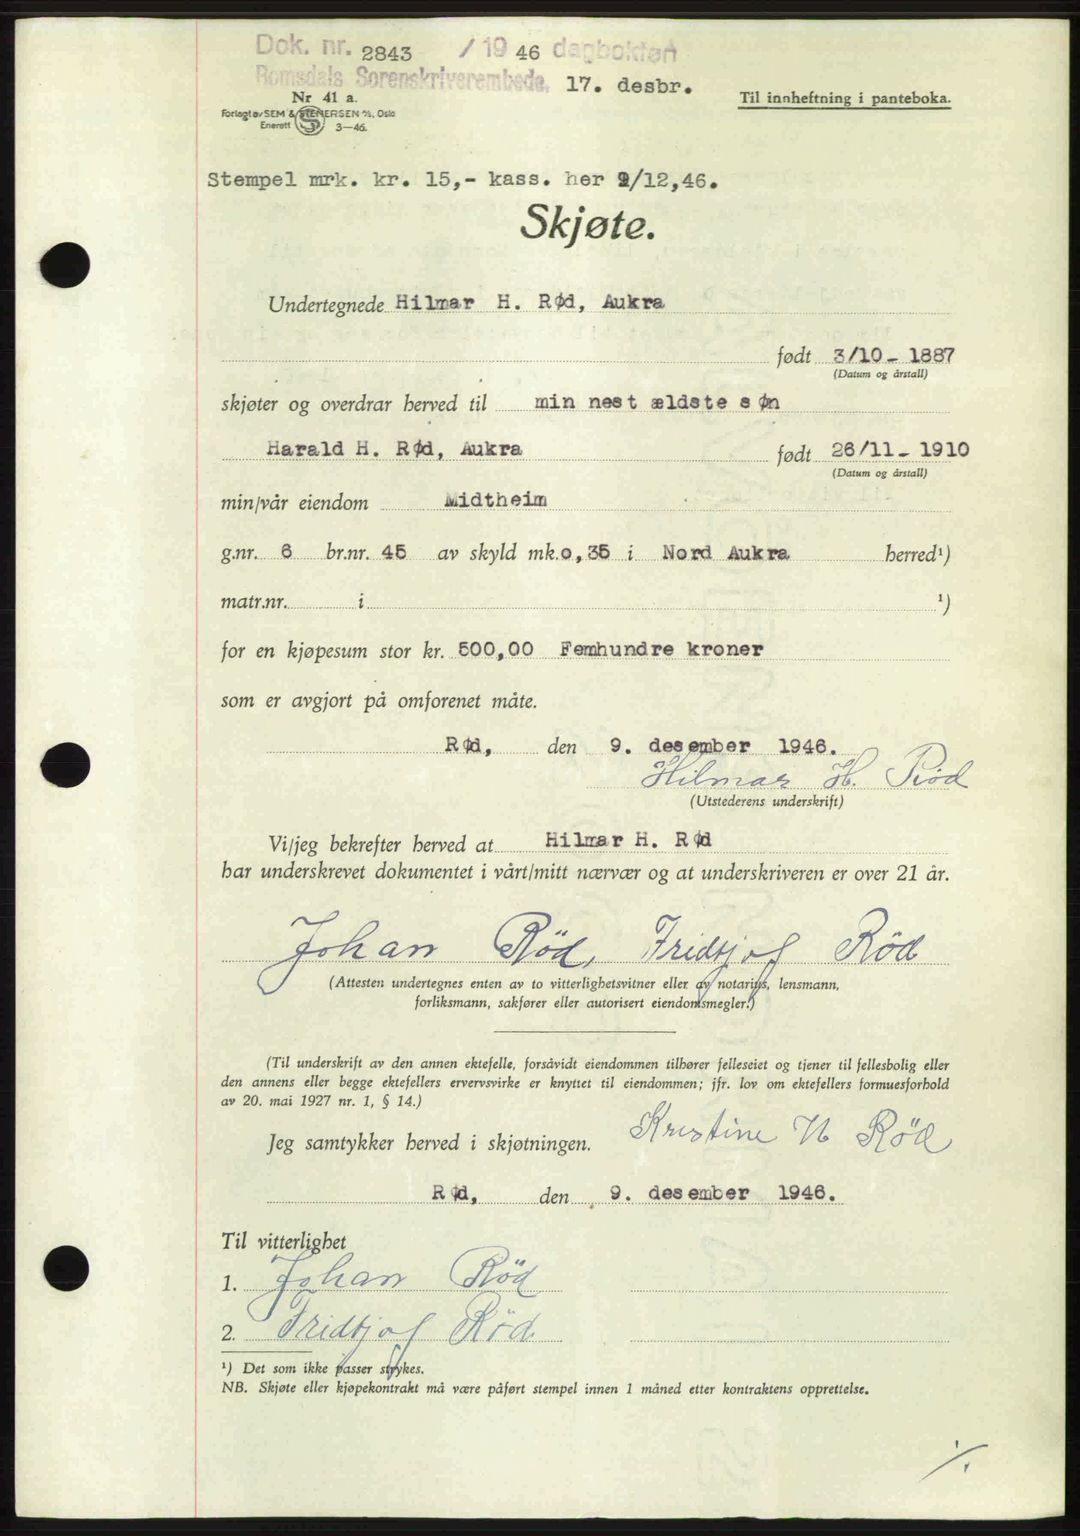 Dok. nr. 2843 / 19 46 dagbokført
Romsdals Sorenskriverembede, 17. desbr.
Nr 41 a.
Til innheftning i panteboka.
Forlagt av SEM & STENERSEN A/S, Oslo
Enerett 3-46.
Stempel mrk. kr. 15,- kass. her 9/12,46.
Skjøte.
Undertegnede Hilmar H. Rød, Aukra
født 3/10 - 1887
(Datum og årstall)
skjøter og overdrar herved til min nest ældste søn
Harald H. Rød, Aukra født 26/11 - 1910
(Datum og årstall)
min/vår eiendom Midtheim
g.nr. 6 br.nr. 45 av skyld mk. 0,35 i Nord Aukra herred¹)
matr.nr. i ¹)
for en kjøpesum stor kr. 500,00 Femhundre kroner
som er avgjort på omforenet måte.
Rød, den 9. desember 1946.
Hilmar H. Rød
(Utstederens underskrift)
Vi/jeg bekrefter herved at Hilmar H. Rød
har underskrevet dokumentet i vårt/mitt nærvær og at underskriveren er over 21 år.
Johan Rød, Fridtjof Rød
(Attesten undertegnes enten av to vitterlighetsvitner eller av notarius, lensmann,
forliksmann, sakfører eller autorisert eiendomsmegler.)
(Til underskrift av den annen ektefelle, forsåvidt eiendommen tilhører felleseiet og tjener til fellesbolig eller
den annens eller begge ektefellers ervervsvirke er knyttet til eiendommen; jfr. lov om ektefellers formuesforhold
av 20. mai 1927 nr. 1, § 14.)
Kristine H Rød
Jeg samtykker herved i skjøtningen.
Rød, den 9. desember 1946.
Til vitterlighet
1. Johan Rød
2. Fridtjof Rød
¹) Det som ikke passer strykes.
NB. Skjøte eller kjøpekontrakt må være påført stempel innen 1 måned etter kontraktens opprettelse.